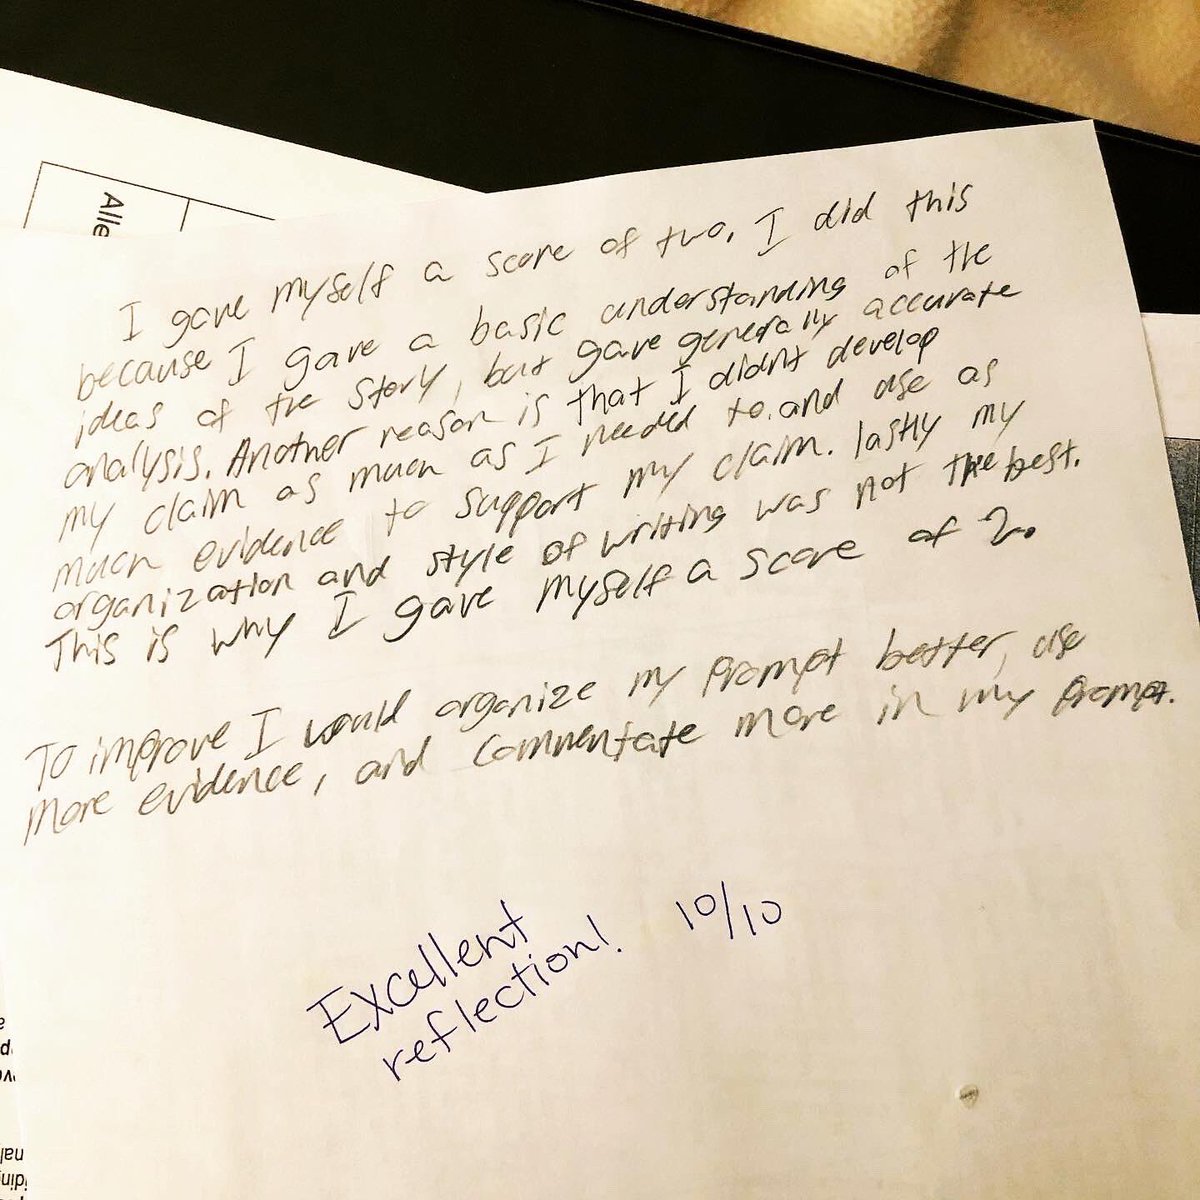 Alle
I gave myself a score of two. I did this
because I gave a basic understanding of the
ideas of the story, but gave generally accurate
analysis. Another reason is that I didnt develop
my claim as much as I needed to and use as
much evidence to support my claim. lastly my
organization and style of writing was not the best.
This is why I gave myself a score of 2.
To improve I would organize my prompt better, use
more evidence, and commentate more in my prompt.
Excellent
reflection! 10/10